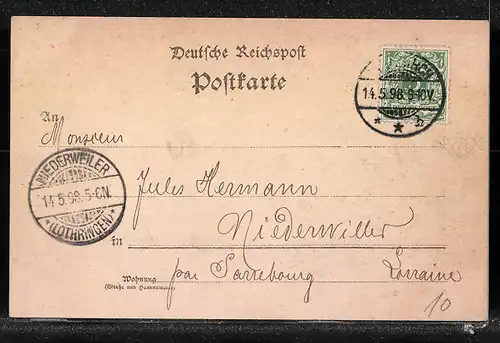 Deutsche Reichspost
Postkarte
14.5.98. 8-10V.
An
Monsieur
NIEDERWEILER
14.5.98.5-6N.
*(LOTHRINGEN)*
Jules Hermann
in Niederwiller
Wohnung
(Straße und Hausnummer)
par Sarrebourg Lorraine
10